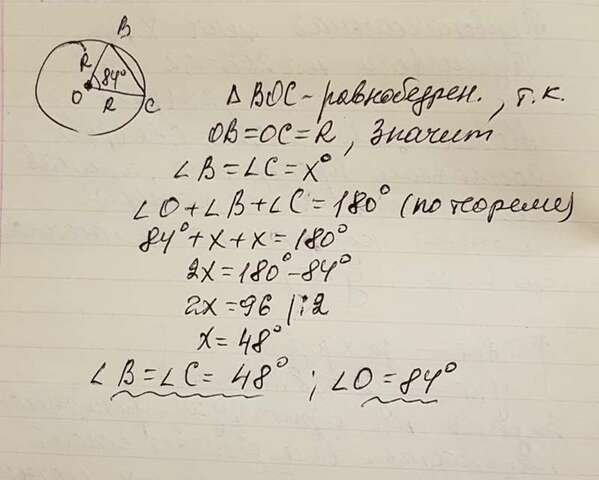 B
R 84°
O R C
△ BOC - равнобедрен., т.к.
OB=OC=R, Значит
∠B=∠C=x°
∠O+∠B+∠C=180° (по теореме)
84°+x+x=180°
2x=180°-84°
2x=96 /:2
x=48°
∠B=∠C=48° ; ∠O=84°